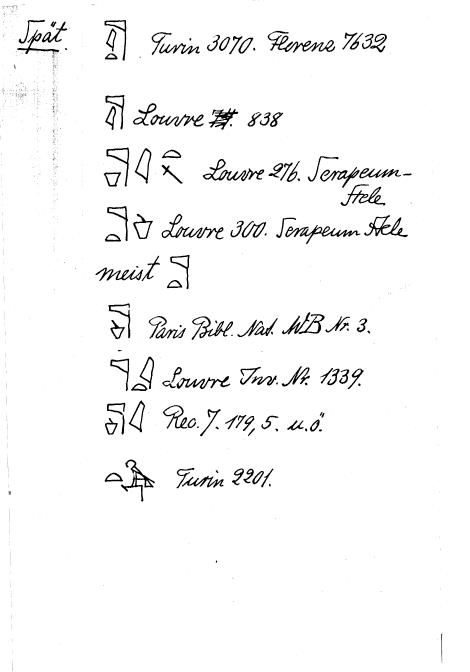 Spät.
Turin 3070. Florenz 7632
Louvre 838
Louvre 276. Serapeum-
Stele
Louvre 300. Serapeum Stele
meist
Paris Bibl. Nat. Nr. 3.
Louvre Inv. Nr. 1339.
Rec. 7. 179, 5. u. ö.
Turin 2201.